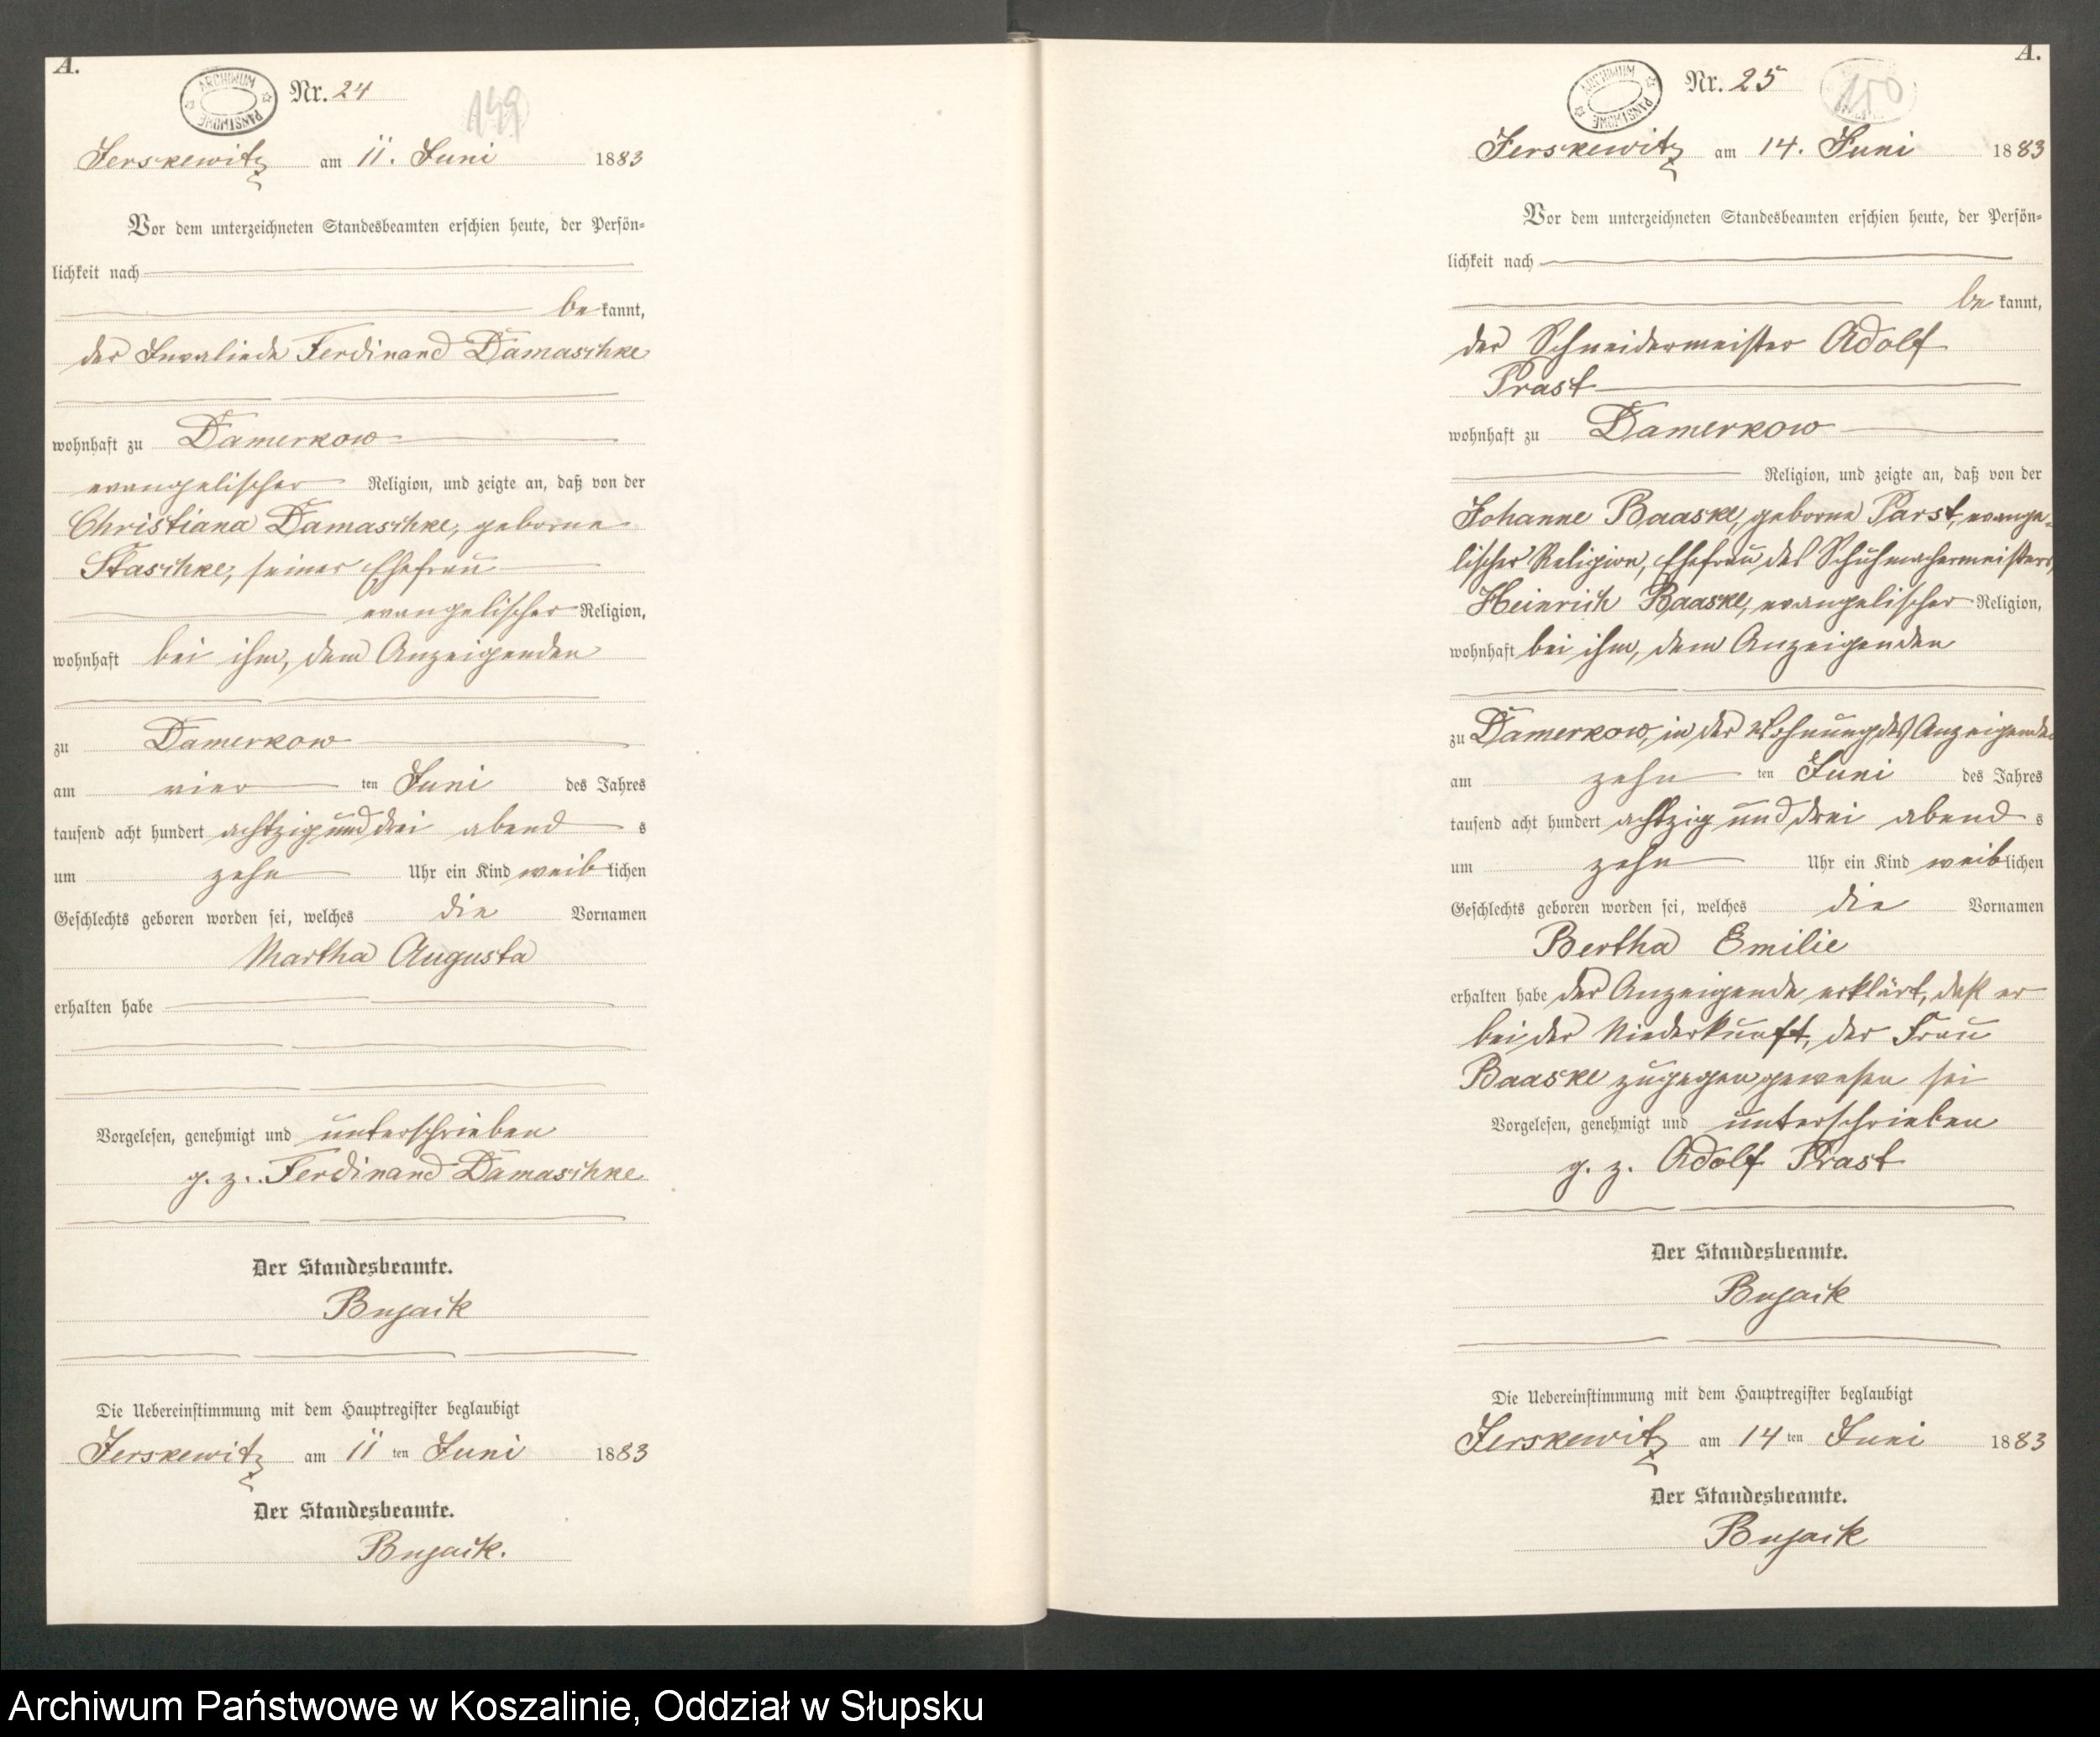 A.
ARCHIWUM PAŃSTWOWE
Nr. 24
149
Jerskewitz am 11. Juni 1883
Vor dem unterzeichneten Standesbeamten erschien heute, der Persön-
lichkeit nach
bekannt,
der Invaliede Ferdinand Damaschke
wohnhaft zu Damerkow
evangelischer Religion, und zeigte an, daß von der
Christiana Damaschke, geborne
Staschke, seiner Ehefrau
evangelischer Religion,
wohnhaft bei ihm, dem Anzeigenden
zu Damerkow
am vier ten Juni des Jahres
tausend acht hundert achtzig und drei abend s
um zehn Uhr ein Kind weiblichen
Geschlechts geboren worden sei, welches die Vornamen
Martha Augusta
erhalten habe
Vorgelesen, genehmigt und unterschrieben
g. z. Ferdinand Damaschke
Der Standesbeamte.
Die Uebereinstimmung mit dem Hauptregister beglaubigt
Jerskewitz am 11 ten Juni 1883
Der Standesbeamte.
A.
ARCHIWUM PAŃSTWOWE
Nr. 25
150
Jerskewitz am 14. Juni 1883
Vor dem unterzeichneten Standesbeamten erschien heute, der Persön-
lichkeit nach
bekannt,
der Schneidermeister Adolf
Prast
wohnhaft zu Damerkow
Religion, und zeigte an, daß von der
Johanne Baaske, geborne Parst, evange-
lischer Religion, Ehefrau des Schuhmachermeisters,
Heinrich Baaske, evangelischer Religion,
wohnhaft bei ihm, dem Anzeigenden
zu Damerkow, in der Wohnung des Anzeigenden
am zehn ten Juni des Jahres
tausend acht hundert achtzig und drei abend s
um zehn Uhr ein Kind weiblichen
Geschlechts geboren worden sei, welches die Vornamen
Bertha Emilie
erhalten habe der Anzeigende erklärt, daß er
bei der Niederkunft, der Frau
Baaske zugegen gewesen sei
Vorgelesen, genehmigt und unterschrieben
g. z. Adolf Prast
Der Standesbeamte.
Die Uebereinstimmung mit dem Hauptregister beglaubigt
Jerskewitz am 14 ten Juni 1883
Der Standesbeamte.
Archiwum Państwowe w Koszalinie, Oddział w Słupsku